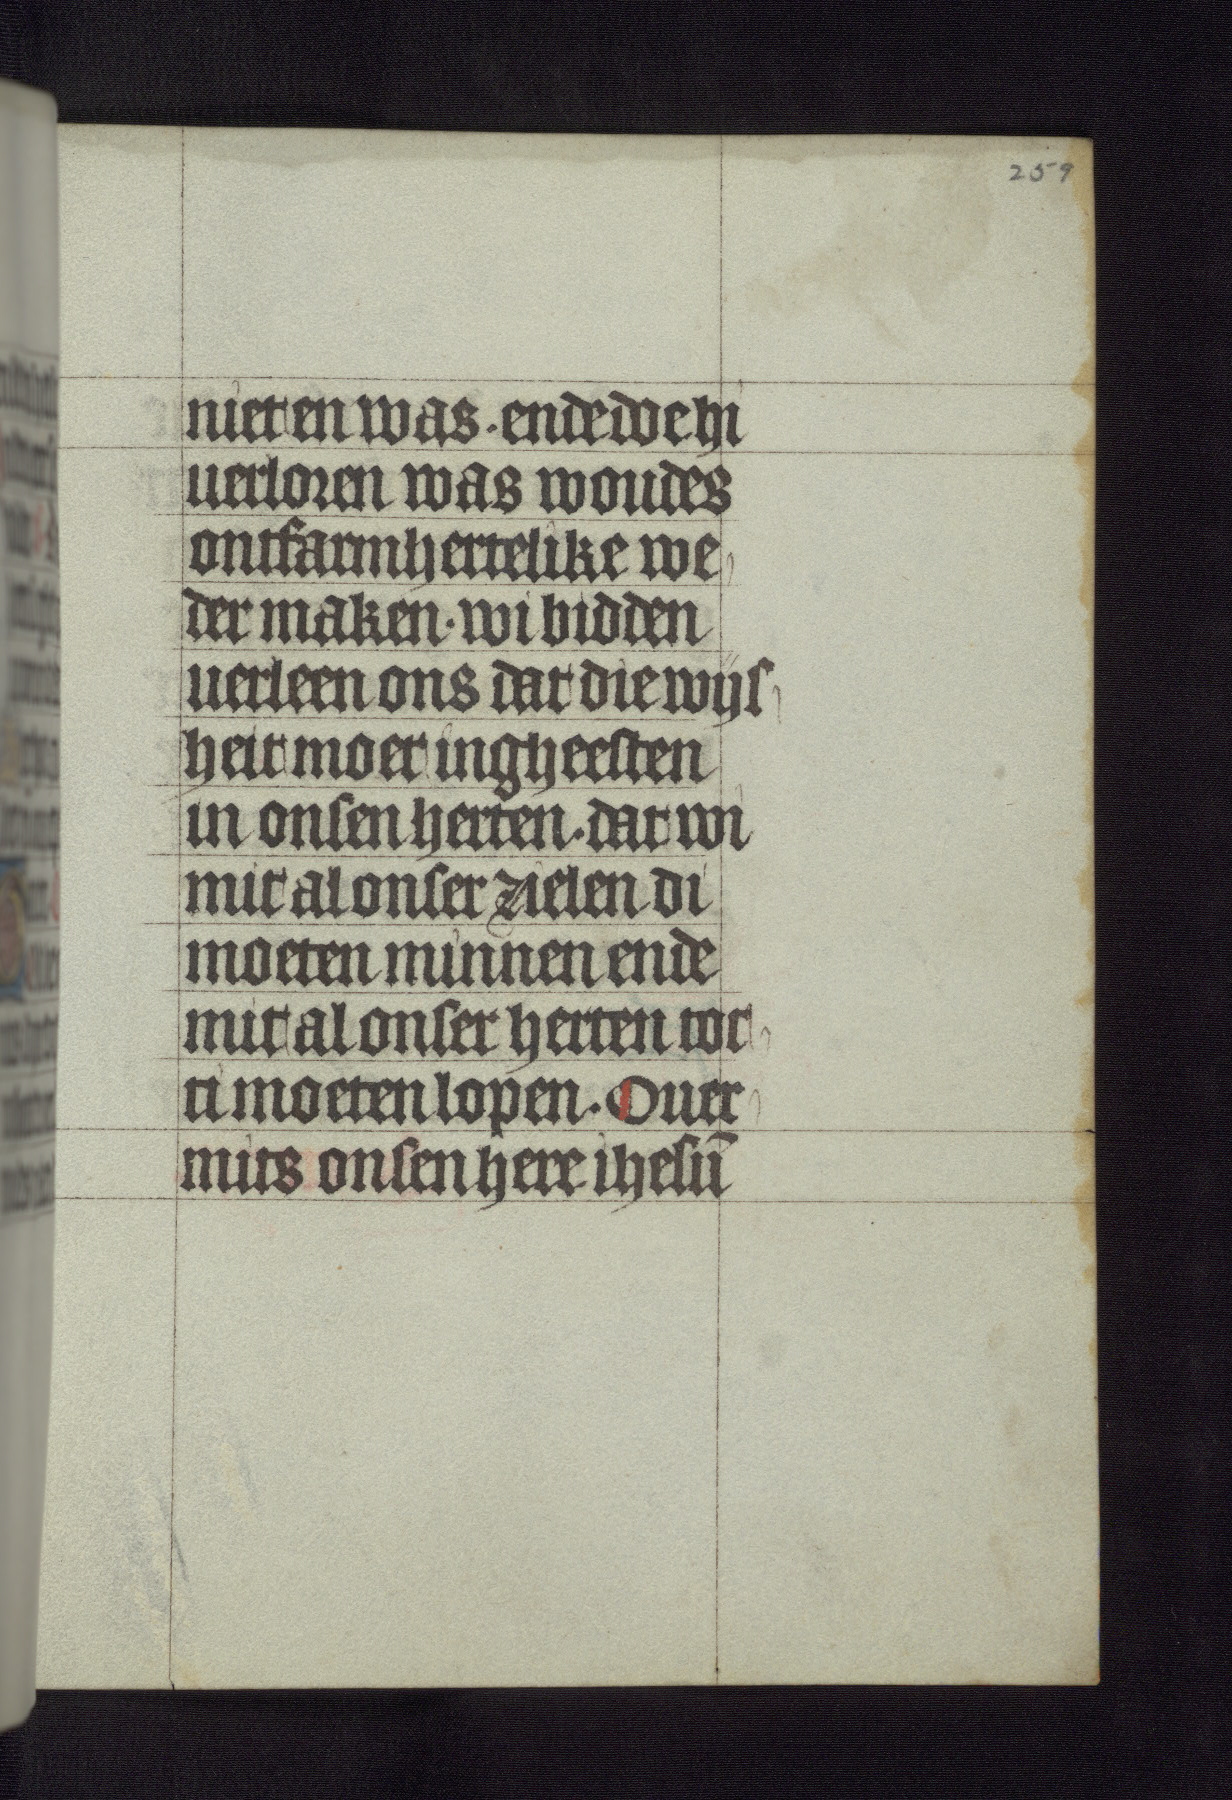 259
niet en was. ende doe hi
uerloren was woudes
ontfarmhertelike we
der maken. wi bidden
uerleen ons dat die wijs
heit moet ingheesten
in onsen herten. dat wi
mit al onser zielen di
moeten minnen ende
mit al onser herten tot
ti moeten lopen. Ouer
mits onsen here ihesū